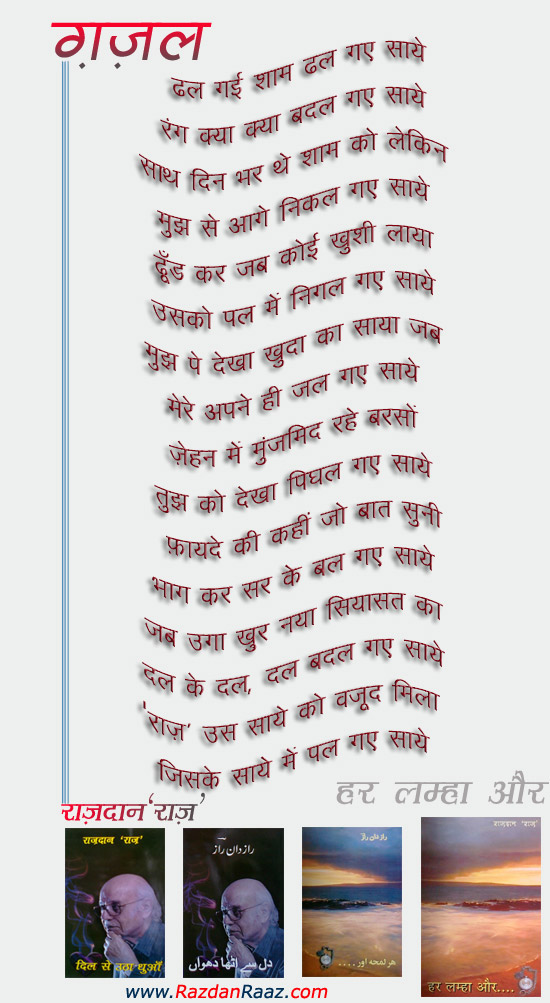 ग़ज़ल
ढल गई शाम ढल गए साये
रंग क्या क्या बदल गए साये
साथ दिन भर थे शाम को लेकिन
मुझ से आगे निकल गए साये
ढूँड कर जब कोई खुशी लाया
उसको पल में निगल गए साये
मुझ पे देखा खुदा का साया जब
मेरे अपने ही जल गए साये
ज़ेहन में मुंजमिद रहे बरसों
तुझ को देखा पिघल गए साये
फ़ायदे की कहीं जो बात सुनी
भाग कर सर के बल गए साये
जब उगा खुर नया सियासत का
दल के दल, दल बदल गए साये
'राज़' उस साये को वजूद मिला
जिसके साये में पल गए साये
राज़दान 'राज़'
हर लम्हा और
राज़दान 'राज़'
दिल से उठा धुआँ
رازدان راز
دل سے اٹھا دھواں
رازدان راز
ہر لمحہ اور....
राज़दान 'राज़'
हर लम्हा और....
www.RazdanRaaz.com